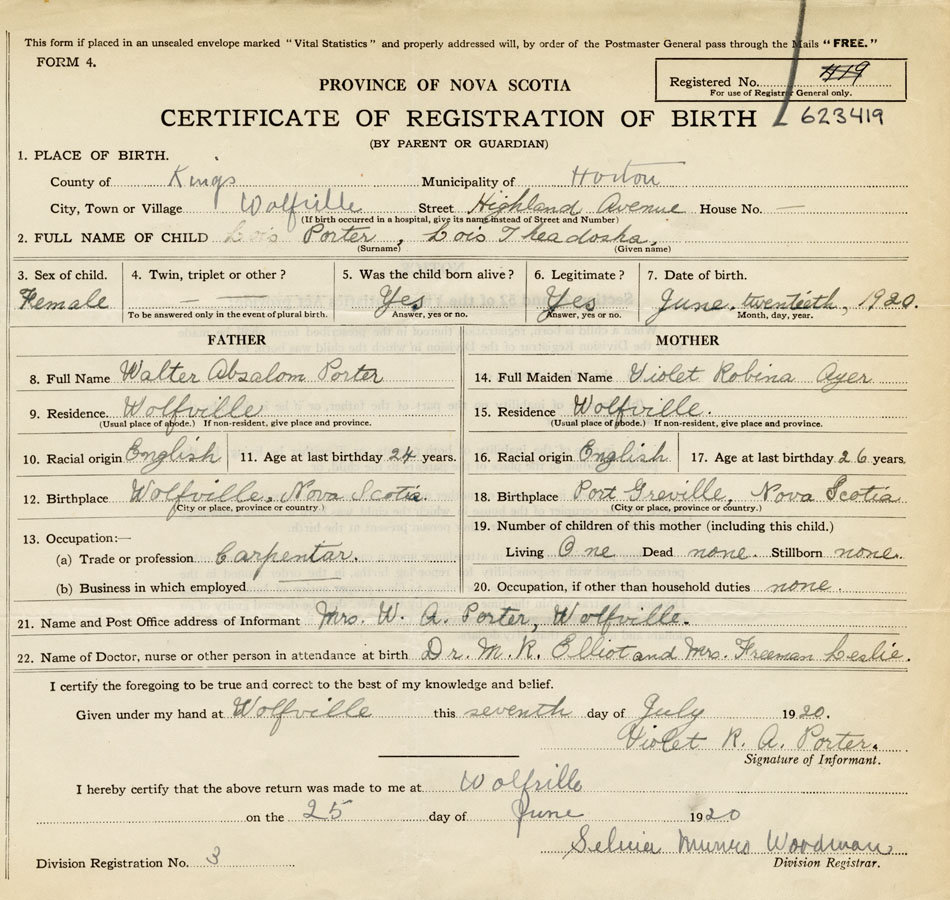 This form if placed in an unsealed envelope marked "Vital Statistics" and properly addressed will, by order of the Postmaster General pass through the Mails "FREE."
FORM 4.
PROVINCE OF NOVA SCOTIA
Registered No. 419
For use of Registrar General only.
CERTIFICATE OF REGISTRATION OF BIRTH 623419
(BY PARENT OR GUARDIAN)
1. PLACE OF BIRTH.
County of Kings Municipality of Horton
City, Town or Village Wolfville Street Highland Avenue House No. —
(If birth occurred in a hospital, give its name instead of Street and Number)
2. FULL NAME OF CHILD Lois Porter, Lois Theadosha,
(Surname) (Given name)
3. Sex of child. 4. Twin, triplet or other? 5. Was the child born alive? 6. Legitimate? 7. Date of birth.
Female — — Yes Yes June, twentieth, 1920.
To be answered only in the event of plural birth. Answer, yes or no. Answer, yes or no. Month, day, year.
FATHER MOTHER
8. Full Name Walter Absalom Porter 14. Full Maiden Name Violet Robina Ayer
9. Residence. Wolfville 15. Residence Wolfville.
(Usual place of abode.) If non-resident, give place and province. (Usual place of abode.) If non-resident, give place and province.
10. Racial origin English 11. Age at last birthday 24 years. 16. Racial origin English 17. Age at last birthday 26 years.
12. Birthplace Wolfville, Nova Scotia. 18. Birthplace Port Greville, Nova Scotia
(City or place, province or country.) (City or place, province or country.)
13. Occupation:— 19. Number of children of this mother (including this child.)
(a) Trade or profession Carpentar. Living One Dead none. Stillborn none.
(b) Business in which employed — 20. Occupation, if other than household duties none.
21. Name and Post Office address of Informant Mrs. W. A. Porter, Wolfville.
22. Name of Doctor, nurse or other person in attendance at birth Dr. M. R. Elliot and Mrs. Freeman Leslie.
I certify the foregoing to be true and correct to the best of my knowledge and belief.
Given under my hand at Wolfville this seventh day of July 1920.
Violet R. A. Porter.
Signature of Informant.
I hereby certify that the above return was made to me at Wolfville
on the 25 day of June 1920
Woodman
Division Registration No. 3 Division Registrar.